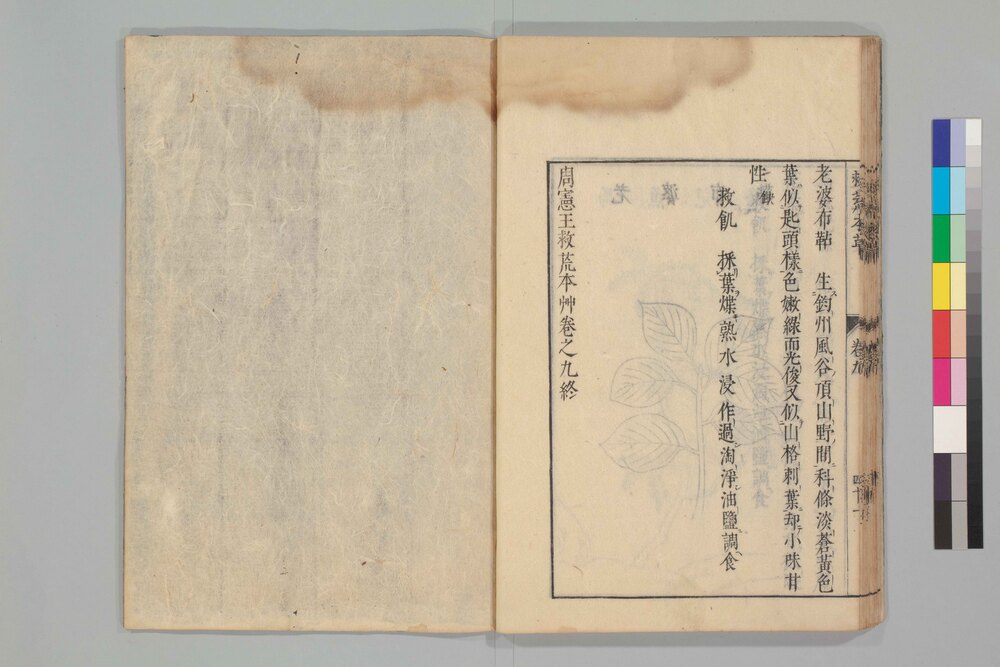 老婆布鞊 生鈞州風谷頂山野間科條淡蒼黃色
葉似匙頭樣色嫩綠而光俊又似山格刺葉却小味甘
性缺
救飢 採葉煠熟水浸作過淘淨油鹽調食
周憲王救荒本艸卷之九終